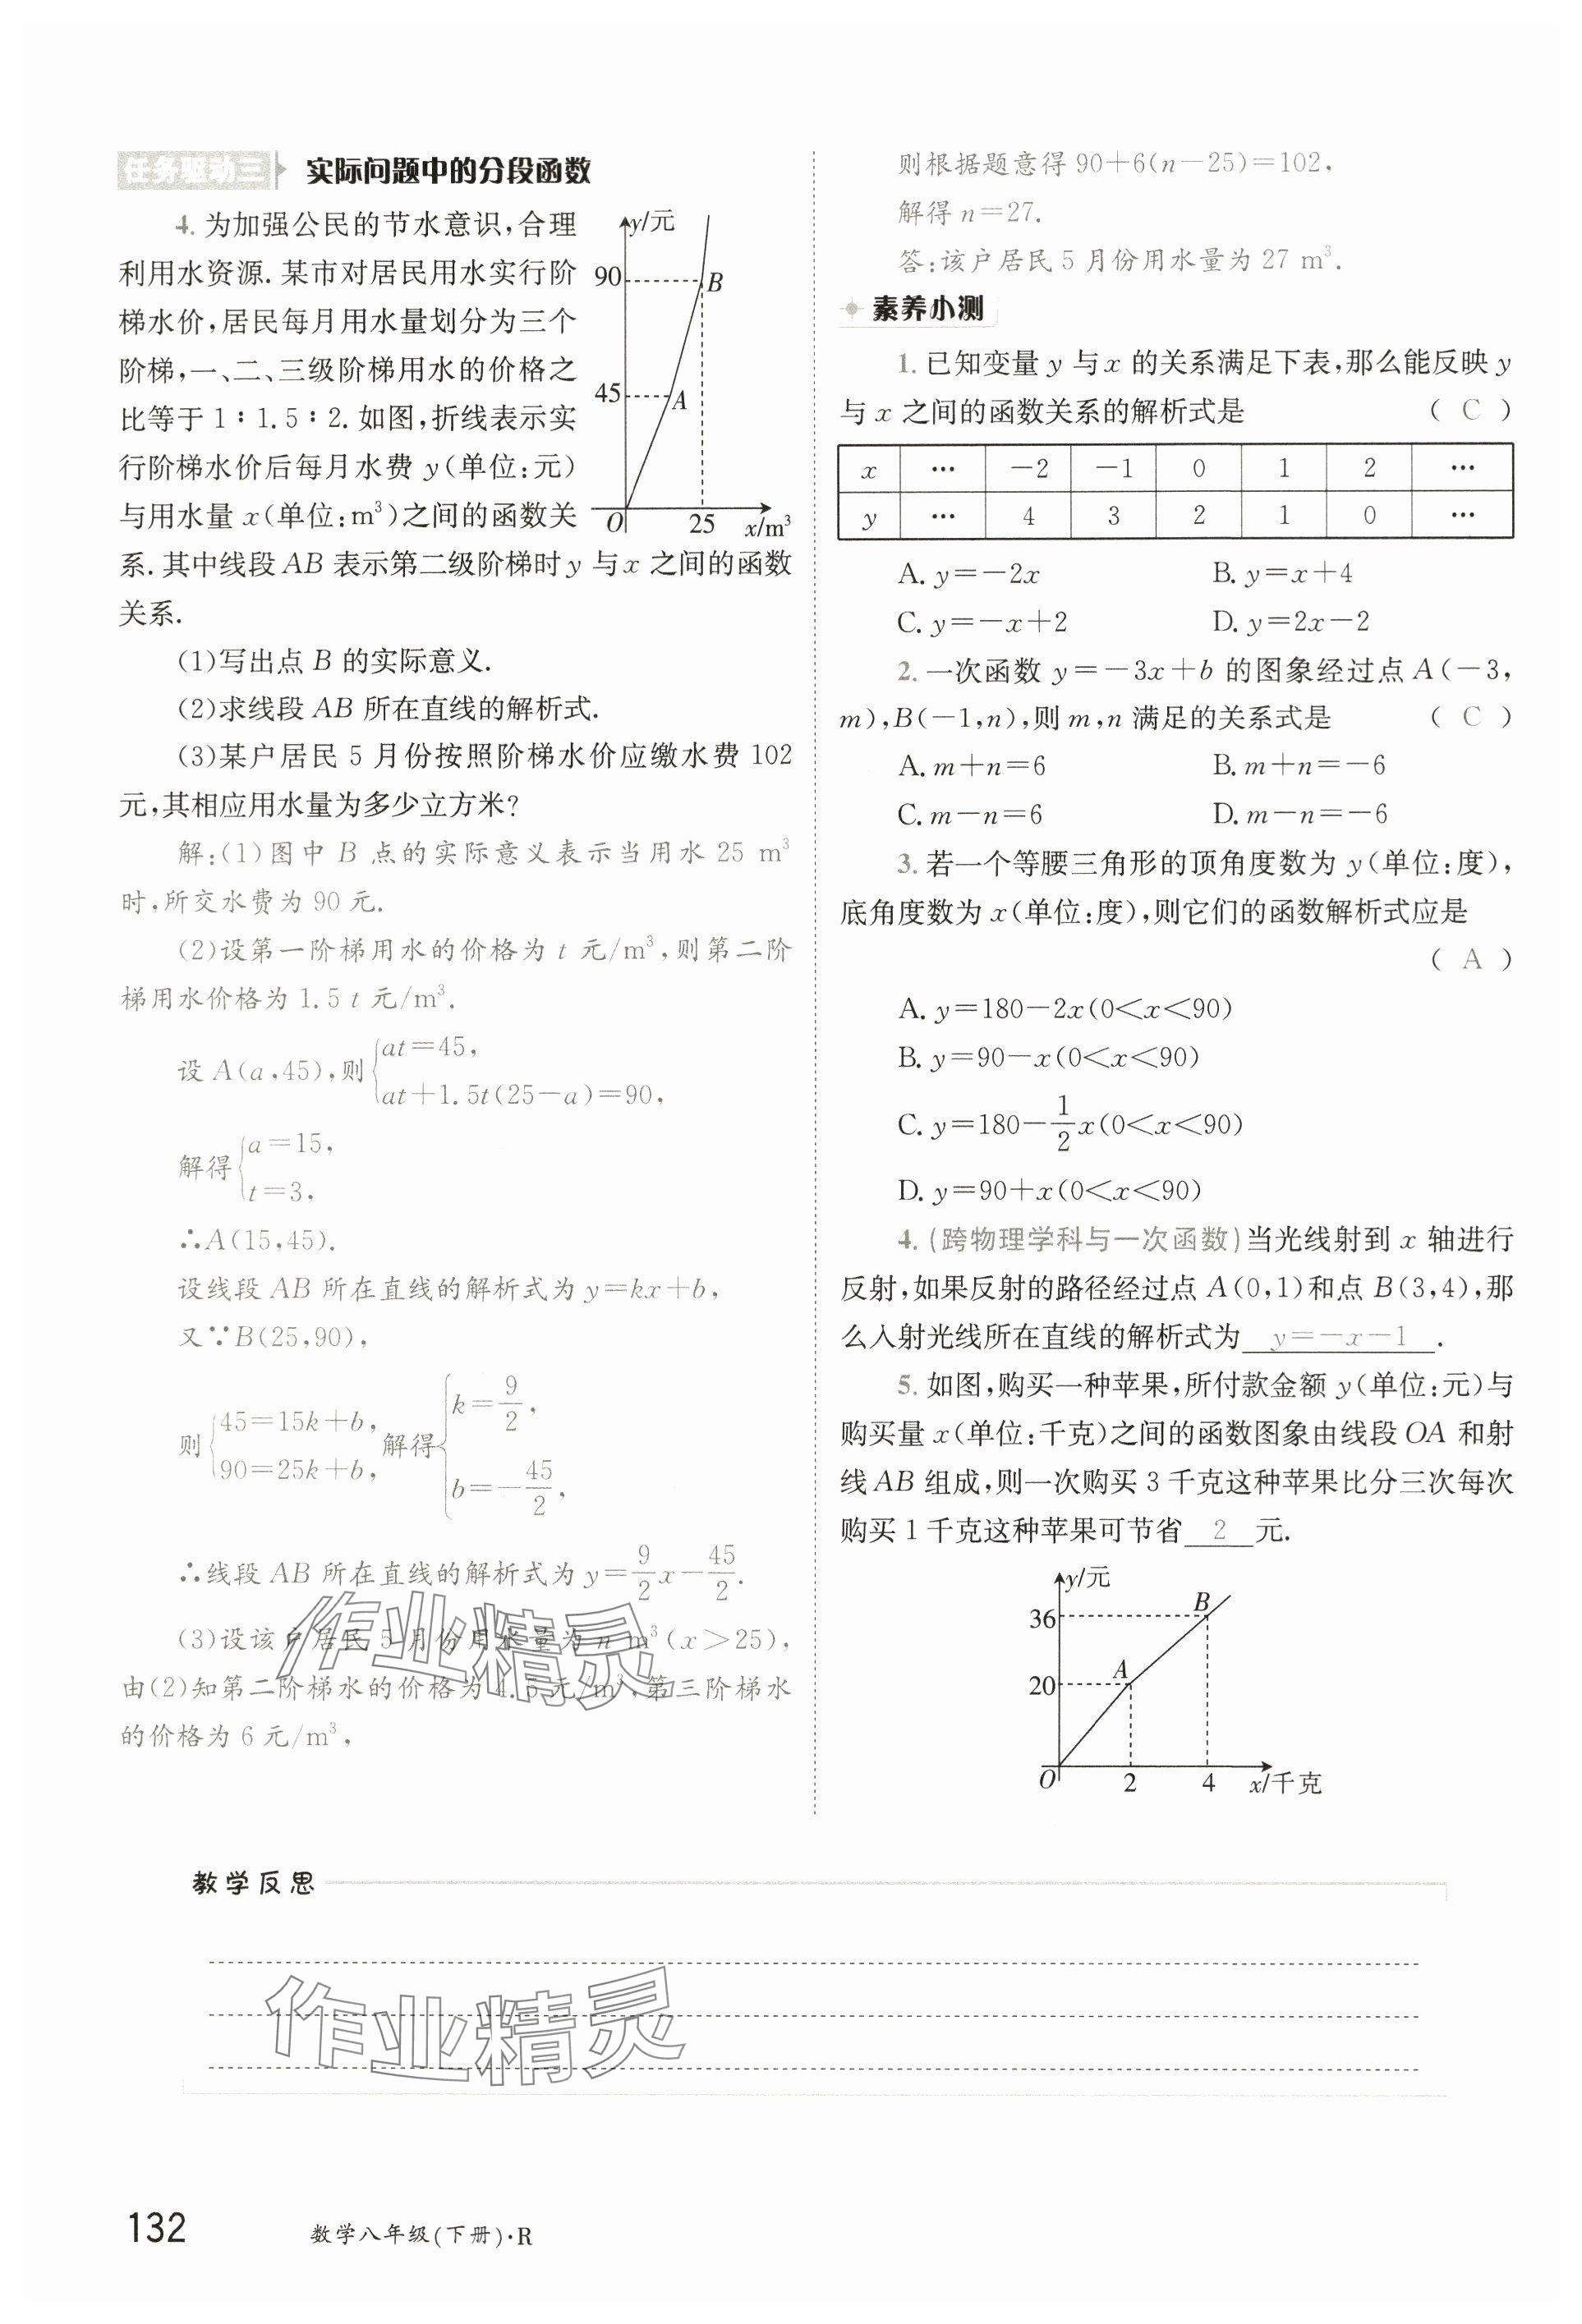 任务驱动三 实际问题中的分段函数
4. 为加强公民的节水意识,合理
利用水资源. 某市对居民用水实行阶
梯水价,居民每月用水量划分为三个
阶梯,一、二、三级阶梯用水的价格之
比等于 1∶1.5∶2. 如图,折线表示实
行阶梯水价后每月水费 y(单位:元)
与用水量 x(单位:m³)之间的函数关
系. 其中线段 AB 表示第二级阶梯时 y 与 x 之间的函数
关系.
y/元
90
B
45
A
O 25 x/m³
(1)写出点 B 的实际意义.
(2)求线段 AB 所在直线的解析式.
(3)某户居民 5 月份按照阶梯水价应缴水费 102
元,其相应用水量为多少立方米?
解:(1)图中 B 点的实际意义表示当用水 25 m³
时,所交水费为 90 元.
(2)设第一阶梯用水的价格为 t 元/m³,则第二阶
梯用水价格为 1.5 t 元/m³.
设 A(a,45),则 {at=45,
at+1.5t(25-a)=90,
解得 {a=15,
t=3,
∴A(15,45).
设线段 AB 所在直线的解析式为 y=kx+b,
又∵B(25,90),
则 {45=15k+b, 90=25k+b, 解得 {k=9/2, b=-45/2,
∴线段 AB 所在直线的解析式为 y=9/2x-45/2.
(3)设该户居民 5 月份用水量为 n m³(x>25),
由(2)知第二阶梯水的价格为 4.5 元/m³,第三阶梯水
的价格为 6 元/m³,
作业精灵
则根据题意得 90+6(n-25)=102,
解得 n=27.
答:该户居民 5 月份用水量为 27 m³.
素养小测
1. 已知变量 y 与 x 的关系满足下表,那么能反映 y
与 x 之间的函数关系的解析式是 ( C )
x … -2 -1 0 1 2 …
y … 4 3 2 1 0 …
A. y=-2x B. y=x+4
C. y=-x+2 D. y=2x-2
2. 一次函数 y=-3x+b 的图象经过点 A(-3,
m),B(-1,n),则 m,n 满足的关系式是 ( C )
A. m+n=6 B. m+n=-6
C. m-n=6 D. m-n=-6
3. 若一个等腰三角形的顶角度数为 y(单位:度),
底角度数为 x(单位:度),则它们的函数解析式应是
( A )
A. y=180-2x(0<x<90)
B. y=90-x(0<x<90)
C. y=180-1/2x(0<x<90)
D. y=90+x(0<x<90)
4. (跨物理学科与一次函数)当光线射到 x 轴进行
反射,如果反射的路径经过点 A(0,1)和点 B(3,4),那
么入射光线所在直线的解析式为 y=-x-1 .
5. 如图,购买一种苹果,所付款金额 y(单位:元)与
购买量 x(单位:千克)之间的函数图象由线段 OA 和射
线 AB 组成,则一次购买 3 千克这种苹果比分三次每次
购买 1 千克这种苹果可节省 2 元.
y/元
36
B
A
20
O 2 4 x/千克
教学反思
作业精灵
132 数学八年级(下册)·R